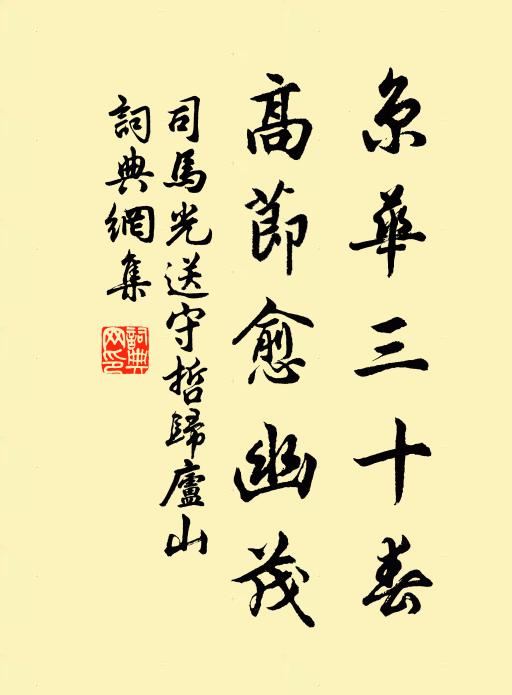 京華三十春
高節愈幽茂
司馬光送守哲歸廬山
詞典網集
詞典網印